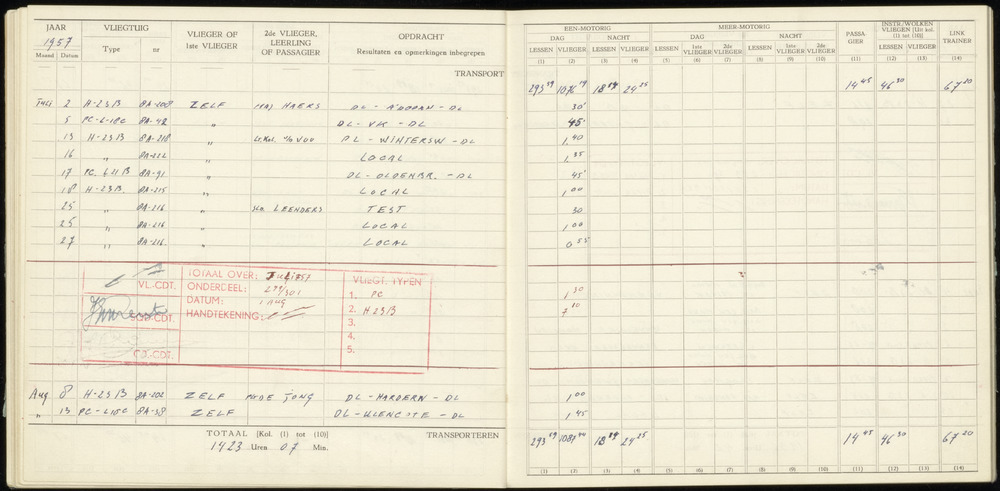 JAAR VLIEGTUIG VLIEGER OF 1ste VLIEGER 2de VLIEGER, LEERLING OF PASSAGIER OPDRACHT
1957 Type nr Resultaten en opmerkingen inbegrepen
Maand Datum
TRANSPORT
Juli 2 H-23B 8A-208 ZELF MAJ HAERS DL - A'DOORN - DL
5 PC-L-18C 8A-42 " DL - VK - DL
13 H-23B 8A-218 " DL - WINTERSW - DL
16 " " LOCAL
17 PC L21B 8A-91 " DL - OLDENBR. - DL
18 H-23B 8A-215 " LOCAL
25 " 8A-216 " LEENDERS TEST
25 " 8A-216 " LOCAL
27 " 8A-216 " LOCAL
VL.-CDT.
SQD-CDT.
CO.-CDT.
TOTAAL OVER: Juli 57
ONDERDEEL: 299/301
DATUM: 1 AUG
HANDTEKENING:
VLIEGT. TYPEN
1. PC
2. H 23B
3.
4.
5.
Aug 8 H-23B 8A-202 ZELF DE JONG DL - HARDERN - DL
" 13 PC-L18C 8A-38 ZELF DL - ULENCOTE - DL
TOTAAL [Kol. (1) tot (10)] TRANSPORTEREN
1423 Uren 07 Min.
EEN-MOTORIG MEER-MOTORIG PASSA- GIER INSTR./WOLKEN VLIEGEN [Uit kol. (1) tot (10)] LINK TRAINER
DAG NACHT DAG NACHT
LESSEN VLIEGER LESSEN VLIEGER LESSEN 1ste VLIEGER 2de VLIEGER LESSEN 1ste VLIEGER 2de VLIEGER LESSEN VLIEGER
(1) (2) (3) (4) (5) (6) (7) (8) (9) (10) (11) (12) (13) (14)
293 59 1076 19 18 54 24 25 14 45 46 30 67 20
30
45
1 40
1 35
45
1 00
30
1 00
0 55
1 30
7 10
1 00
1 45
293 59 18 54 24 25 14 45 46 30 67 20
(1) (2) (3) (4) (5) (6) (7) (8) (9) (10) (11) (12) (13) (14)